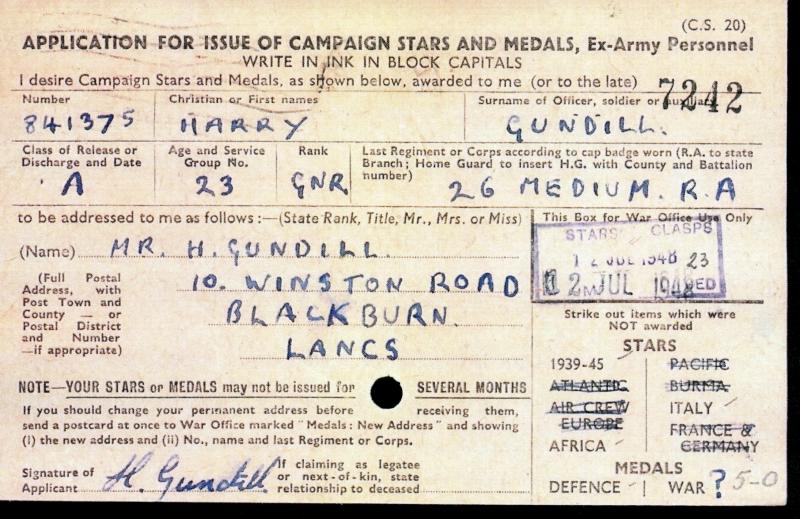 (C.S. 20)
APPLICATION FOR ISSUE OF CAMPAIGN STARS AND MEDALS, Ex-Army Personnel
WRITE IN INK IN BLOCK CAPITALS
I desire Campaign Stars and Medals, as shown below, awarded to me (or to the late) 7242
Number Christian or First names Surname of Officer, soldier or auxiliary
841375 HARRY GUNDILL.
Class of Release or Discharge and Date
Age and Service Group No.
Rank
Last Regiment or Corps according to cap badge worn (R.A. to state
Branch; Home Guard to insert H.G. with County and Battalion
number)
A 23 GNR 26 MEDIUM. R.A
to be addressed to me as follows:—(State Rank, Title, Mr., Mrs. or Miss)
(Name) MR. H. GUNDILL.
(Full Postal
Address, with
Post Town and
County — or
Postal District
and Number
—if appropriate)
10. WINSTON ROAD
BLACKBURN.
LANCS
This Box for War Office Use Only
STARS CLASPS
12 JUL 1948 23
12 JUL 1948
Strike out items which were
NOT awarded
STARS
1939-45 PACIFIC
ATLANTIC BURMA
AIR CREW ITALY
EUROPE FRANCE &
AFRICA GERMANY
MEDALS
DEFENCE WAR ? 5-0
NOTE—YOUR STARS or MEDALS may not be issued for SEVERAL MONTHS
If you should change your permanent address before receiving them,
send a postcard at once to War Office marked "Medals: New Address" and showing
(i) the new address and (ii) No., name and last Regiment or Corps.
Signature of
Applicant H. Gundill
If claiming as legatee
or next-of-kin, state
relationship to deceased